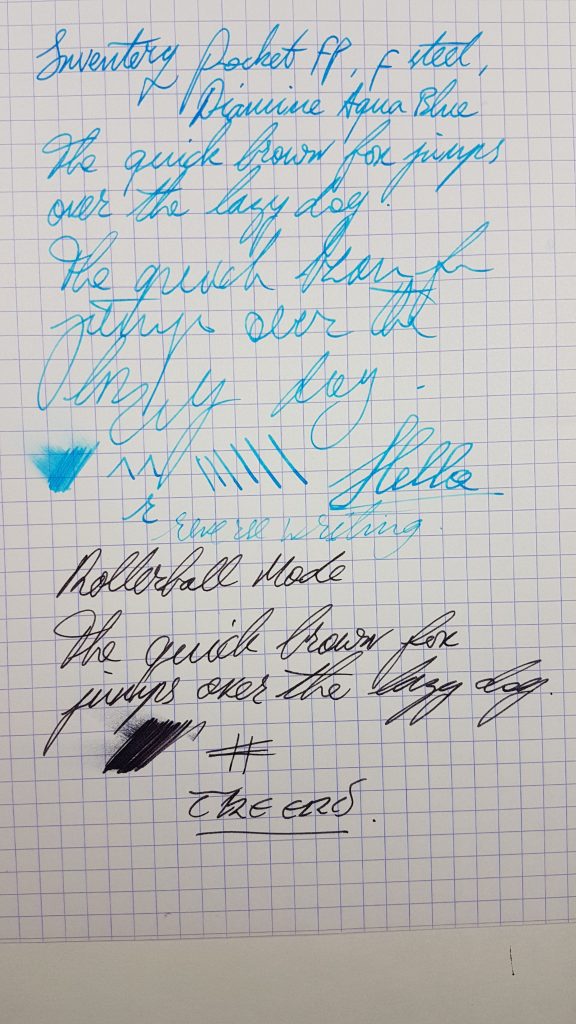 Inventery Pocket FP, F steel,
Diamine Aqua Blue
The quick brown fox jumps
over the lazy dog.
The quick brown fox
jumps over the
lazy dog.
Hello
reverse writing.
Rollerball Mode
The quick brown fox
jumps over the lazy dog.
#
The end.